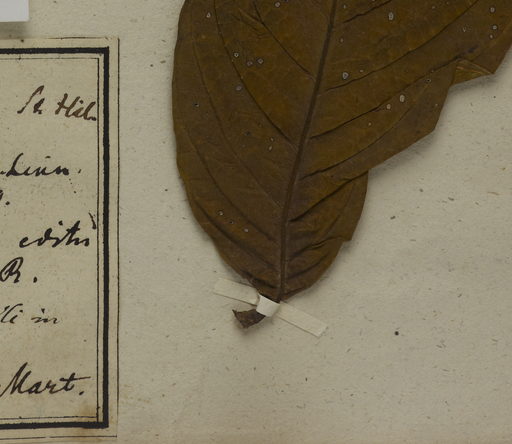 St. Hil.
Linn.
editis
R.
in
Mart.